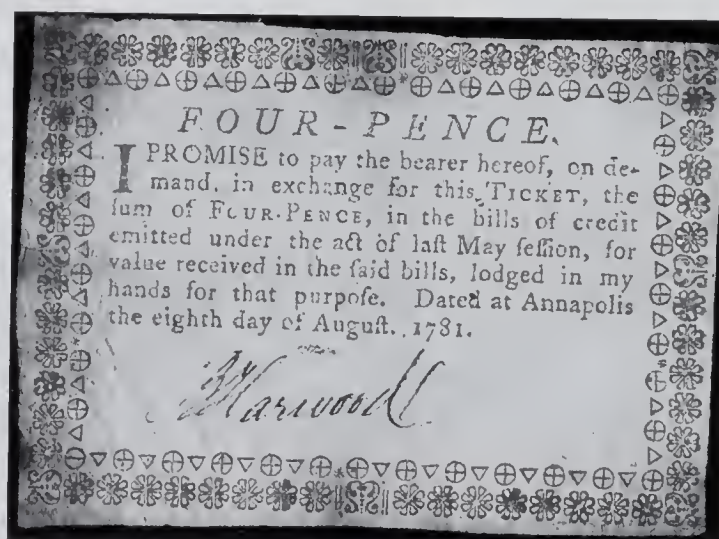 FOUR-PENCE.
I PROMISE to pay the bearer hereof, on de-
mand, in exchange for this TICKET, the
ſum of FOUR-PENCE, in the bills of credit
emitted under the act of laſt May ſeſſion, for
value received in the ſaid bills, lodged in my
hands for that purpoſe. Dated at Annapolis
the eighth day of Auguſt, 1781.
Harwood